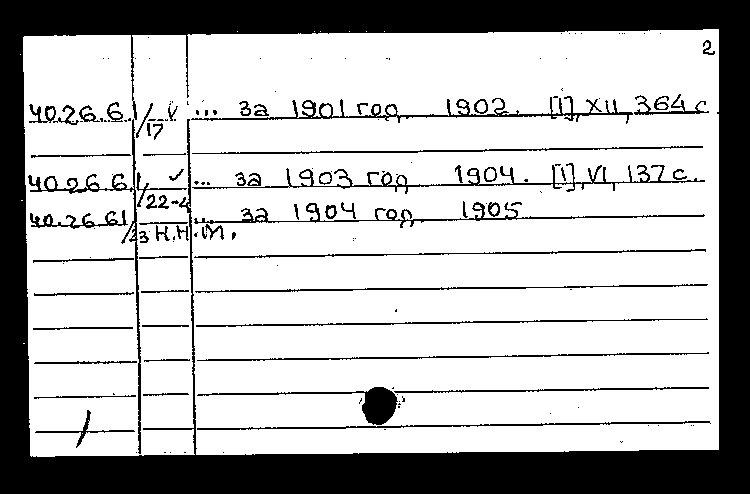 2
40.26.6.1/17 ✓ ... за 1901 год 1902. [I], XII, 364 с
40.26.6.1/22-4 ✓ ... за 1903 год 1904. [I], VI, 137 с.
40.26.61/ ... за 1904 год 1905
Н.Н.